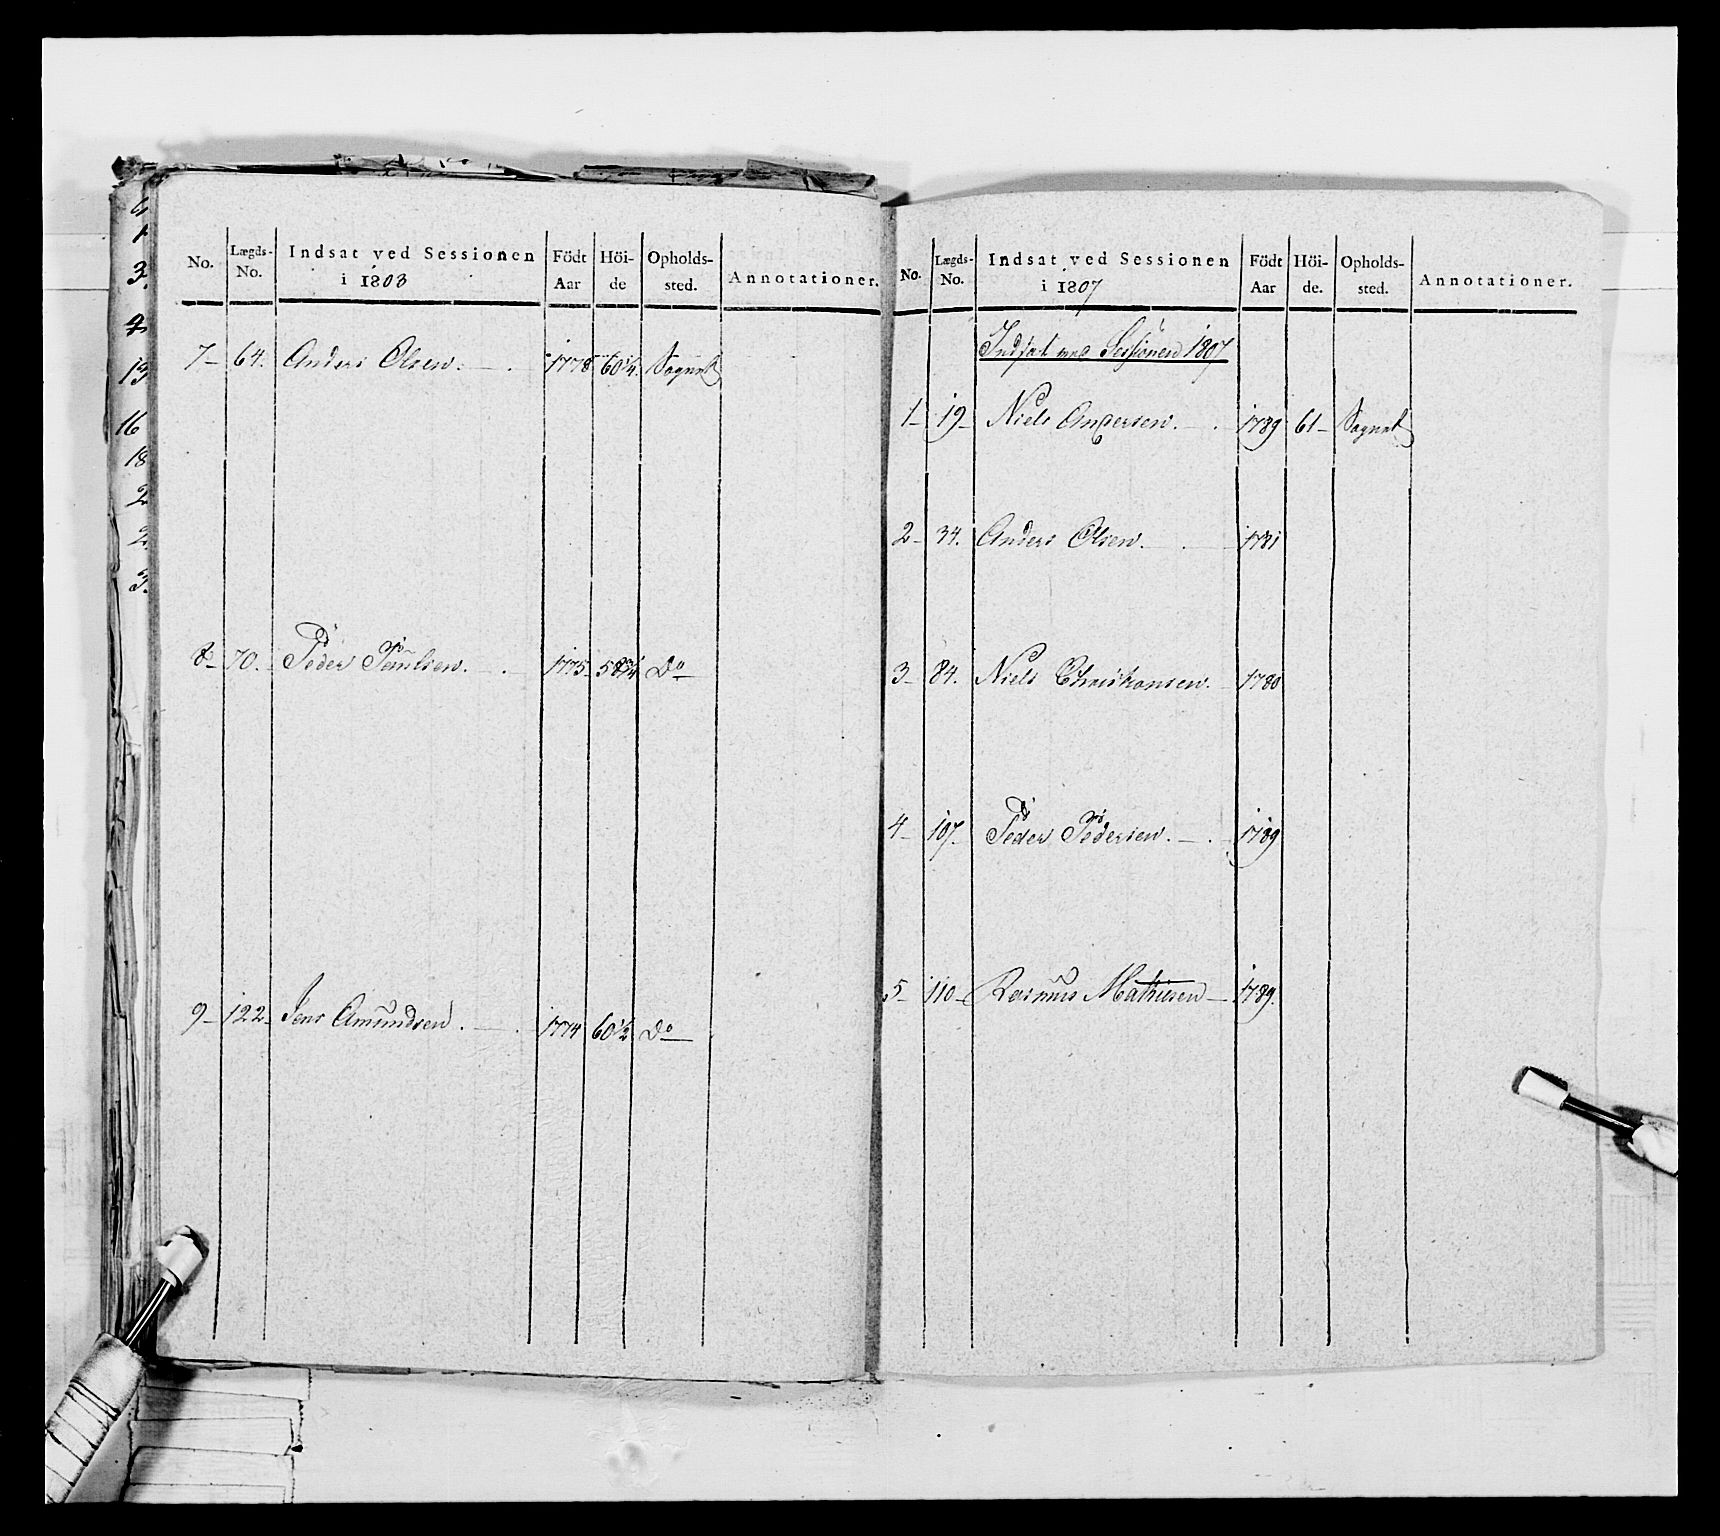 No. Lægds-No. Indsat ved Sessionen i 1803 Födt Aar Höi-de Opholds-sted. Annotationer.
7- 64. Anders Olsen. 1778 60 1/4. Sognet
8- 70. Peder 1775 58 3/4 Do
9- 122 Jens Amundsen. 1774 60 1/2 Do
No. Lægds-No. Indsat ved Sessionen i 1807 Födt Aar Höi-de. Opholds-sted. Annotationer.
Indsat ved Sessionen 1807
1- 19- Niels Andersen. 1789 61- Sognet
2- 34. Anders Olsen. 1781
3- 84. Niels Christiansen. 1780
4- 107. Peder Pedersen. 1789
5- 110- Rasmus Mathiesen 1789.
6
1
3.
4
13
16
18
2
2.
3.